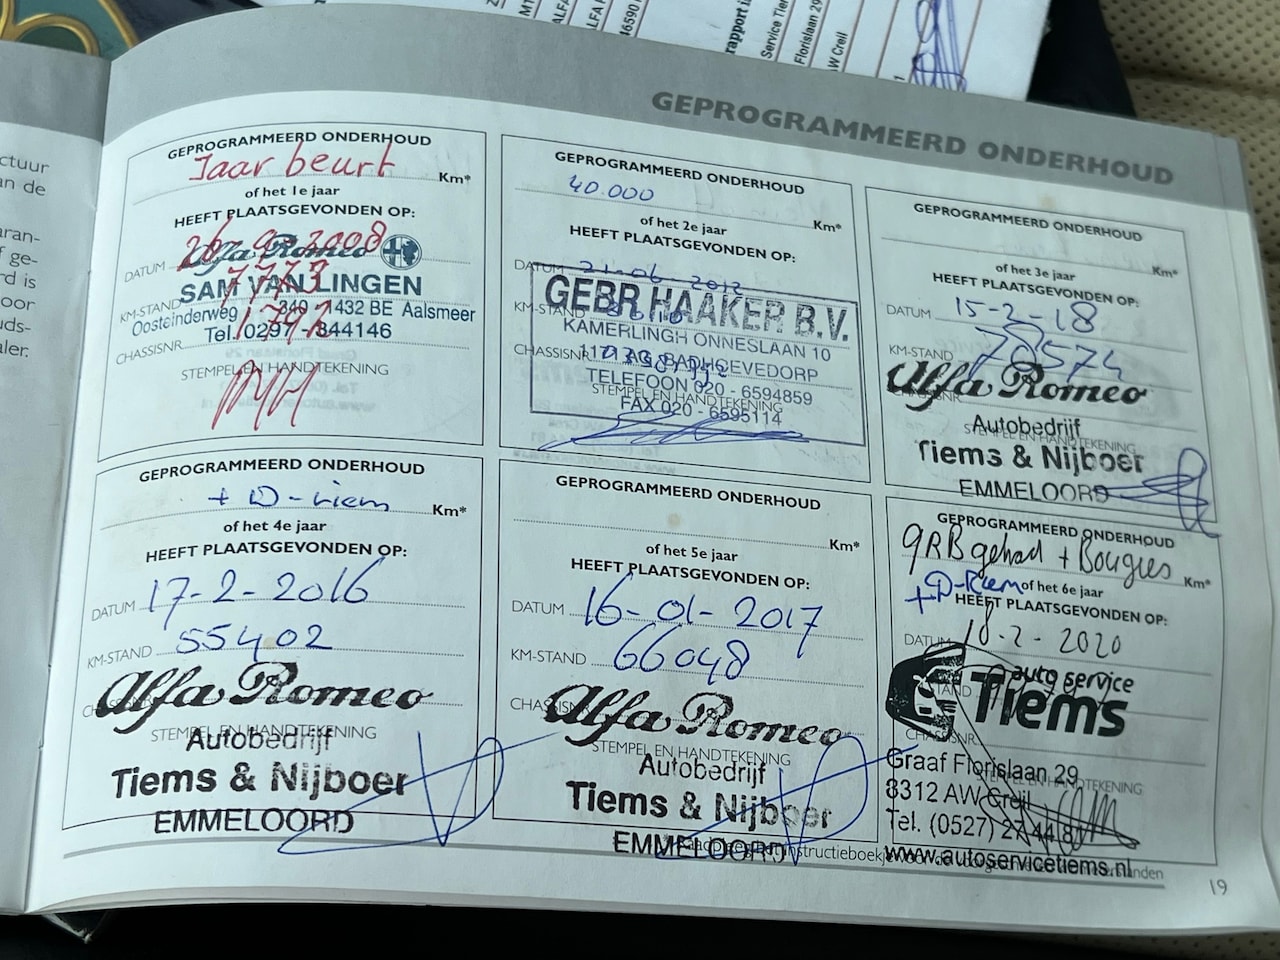 rapport i
Service Tie
Florislaan 29
W Creil
ctuur
an de
aran-
f ge-
rd is
oor
uds-
aler.
GEPROGRAMMEERD ONDERHOUD
GEPROGRAMMEERD ONDERHOUD
Jaar beurt
Km*
of het 1e jaar
HEEFT PLAATSGEVONDEN OP:
DATUM 26-9-2008
Alfa Romeo
KM-STAND 7773
SAM VAN LINGEN
Oosteinderweg 349 - 1432 BE Aalsmeer
Tel. 0297 - 344146
CHASSISNR
STEMPEL EN HANDTEKENING
GEPROGRAMMEERD ONDERHOUD
40.000
Km*
of het 2e jaar
HEEFT PLAATSGEVONDEN OP:
DATUM 21-06-2012
GEBR HAAKER B.V.
KM-STAND
KAMERLINGH ONNESLAAN 10
CHASSISNR
1171 AG BADHOEVEDORP
TELEFOON 020 - 6594859
STEMPEL EN HANDTEKENING
FAX 020 - 6595114
GEPROGRAMMEERD ONDERHOUD
Km*
of het 3e jaar
HEEFT PLAATSGEVONDEN OP:
DATUM 15-2-18
KM-STAND 78574
Alfa Romeo
CHASSISNR
Autobedrijf
STEMPEL EN HANDTEKENING
Tiems & Nijboer
EMMELOORD
GEPROGRAMMEERD ONDERHOUD
+ D-riem
Km*
of het 4e jaar
HEEFT PLAATSGEVONDEN OP:
DATUM 17-2-2016
KM-STAND 55402
Alfa Romeo
STEMPEL EN HANDTEKENING
Autobedrijf
Tiems & Nijboer
EMMELOORD
GEPROGRAMMEERD ONDERHOUD
Km*
of het 5e jaar
HEEFT PLAATSGEVONDEN OP:
DATUM 16-01-2017
KM-STAND 66048
Alfa Romeo
STEMPEL EN HANDTEKENING
Autobedrijf
Tiems & Nijboer
EMMELOORD
GEPROGRAMMEERD ONDERHOUD
GRB gehad + Bougies
Km*
+ D-Riem of het 6e jaar
HEEFT PLAATSGEVONDEN OP:
DATUM 18-2-2020
auto service
Tiems
CHASSISNR
STEMPEL EN HANDTEKENING
Graaf Florislaan 29
8312 AW Creil
Tel. (0527) 27 44 81
www.autoservicetiems.nl
19